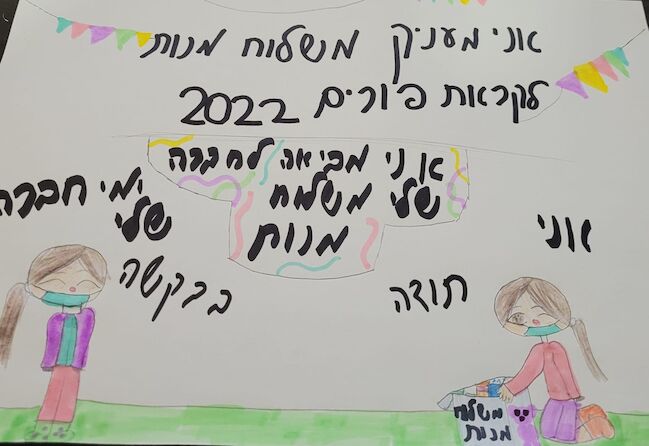 אני מעניק משלוח מנות
לקראת פורים 2022
אני מביאה לחברה
שלי משלוח
מנות
אני
ימי חברה
שלי
תודה
בבקשה
משלוח
מנות